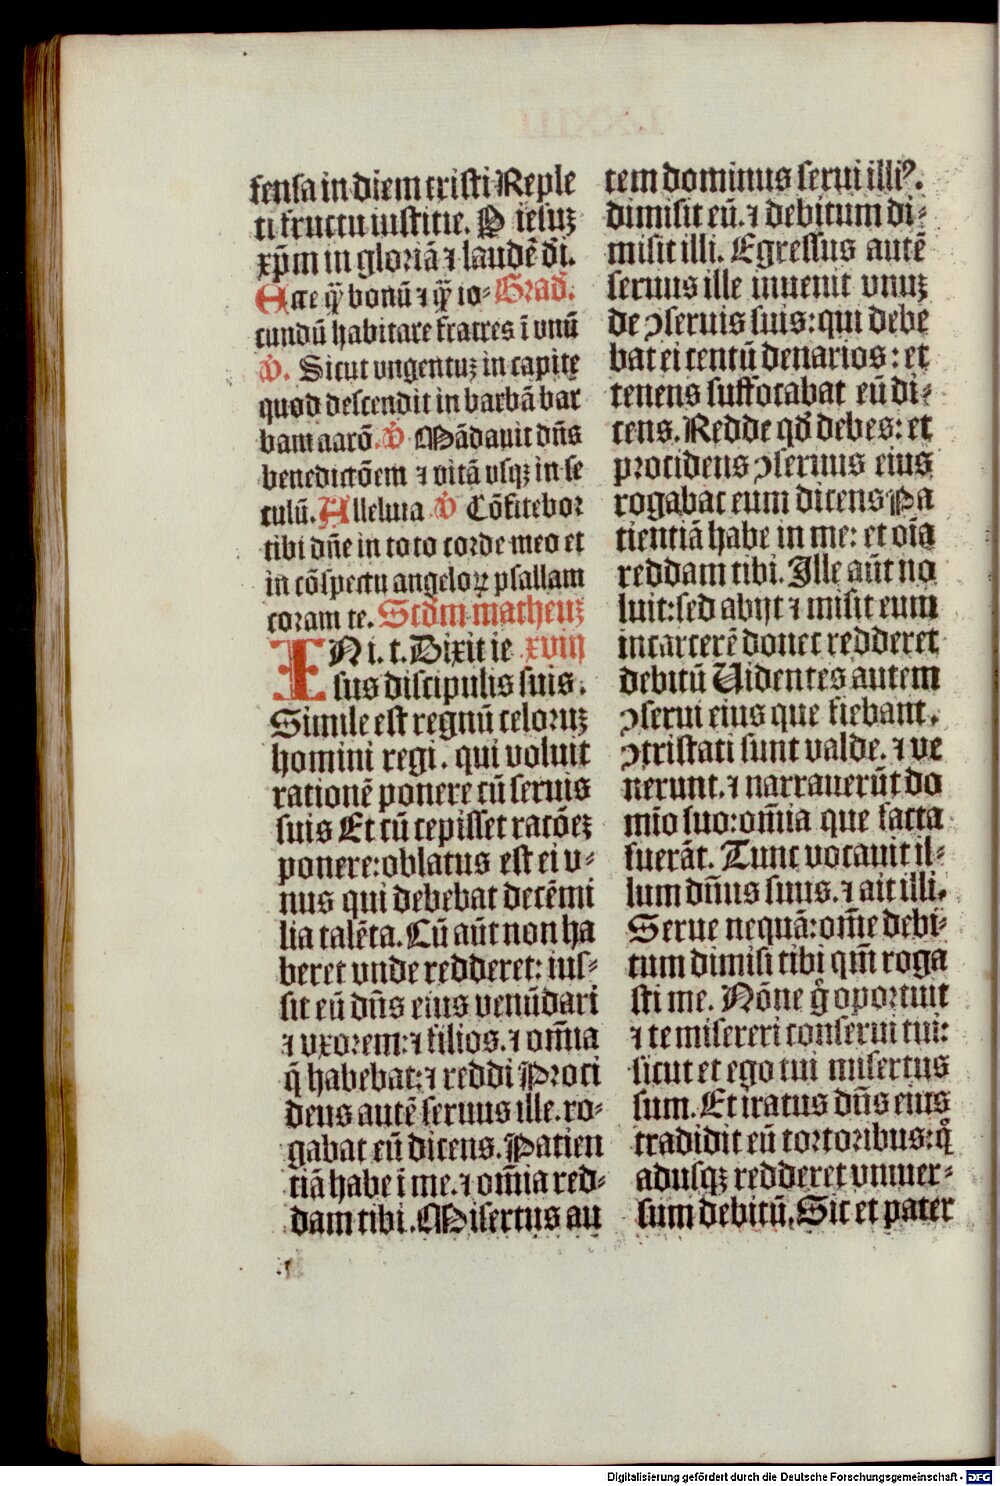 fensa in diem cristi Reple
ti fructu iustitie. P iesuʒ
xp̄m in gloriā ⁊ laudē d̄i.
Ecce q̄ʒ bonū ⁊ q̄ʒ io- Grad̄.
cundū habitare fratres ī unū
v̄. Sicut ungentuʒ in capite
quod descendit in barbā bar
bam aarō. v̄ Mādauit dn̄s
benedictōem ⁊ vitā vsqʒ in se
culū. Alleluia v̄ Cōfitebor
tibi dn̄e in toto corde meo et
in cōspectu angeloꝝ psallam
coram te. Scd̄m matheuʒ
IN i. t. Dixit ie xviij
sus discipulis suis.
Simile est regnū celoruʒ
homini regi. qui voluit
rationē ponere cū seruis
suis Et cū cepisset ratōeʒ
ponere: oblatus est ei v-
nus qui debebat decē mi
lia talēta. Cū aūt non ha
beret unde redderet: ius-
sit eū dn̄s eius venūdari
⁊ vxorem: ⁊ filios. ⁊ om̄ia
q̄ habebat: ⁊ reddi Proci
dens autē seruus ille. ro-
gabat eū dicens. Patien
tiā habe ī me. ⁊ om̄ia red-
dam tibi. Misertus au
tem dominus serui illiꝰ.
dimisit eū. ⁊ debitum di-
misit illi. Egressus autē
seruus ille inuenit vnuʒ
de ↄseruis suis: qui debe
bat ei centū denarios: et
tenens suffocabat eū di-
cens. Redde qd̄ debes: et
procidens ↄseruus eius
rogabat eum dicens Pa
tientiā habe in me: et oīa
reddam tibi. Ille aūt no
luit: sed abijt ⁊ misit eum
in carcerē donec redderet
debitū Uidentes autem
ↄserui eius que fiebant.
ↄtristati sunt valde. ⁊ ve
nerunt. ⁊ narrauerūt do
mīo suo: om̄ia que facta
fuerāt. Tunc vocauit il-
lum dn̄us suus. ⁊ ait illi.
Serue nequā: om̄e debi-
tum dimisi tibi qm̄ roga
sti me. Nōne g̊ oportuit
⁊ te misereri conserui tui:
sicut et ego tui misertus
sum. Et iratus dn̄s eius
tradidit eū tortoribus: q̊
adusqʒ redderet vniuer-
sum debitū. Sic et pater
Digitalisierung gefördert durch die Deutsche Forschungsgemeinschaft - DFG